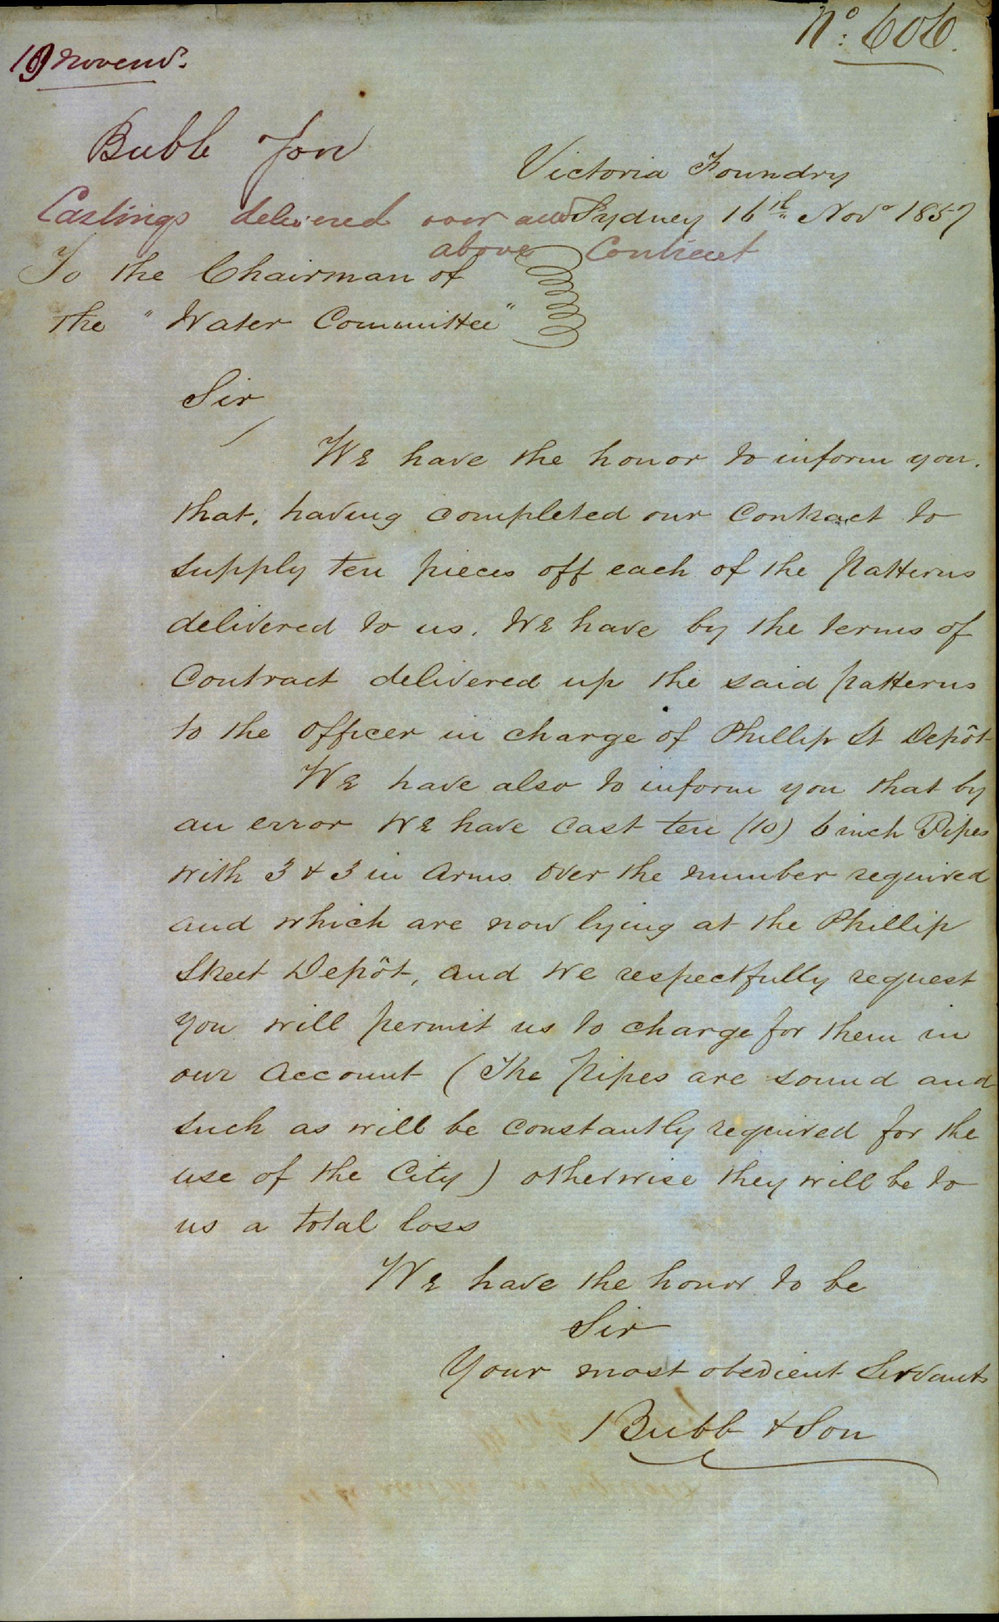 No. 606.
19 Novem.
Bubb & Son
Victoria Foundry
Castings delivered over and Sydney 16th Nov. 1857
above Contract
To the Chairman of
the "Water Committee"
Sir
We have the honor to inform you.
that, having completed our Contract to
supply ten pieces off each of the Patterns
delivered to us. We have by the terms of
Contract delivered up the said patterns
to the officer in charge of Phillip St Depôt
We have also to inform you that by
an error we have cast ten (10) 6 inch Pipes
with 3 & 3 in Arms over the number required
and which are now lying at the Phillip
Street Depôt, and we respectfully request
you will permit us to charge for them in
our Account (The pipes are sound and
such as will be constantly required for the
use of the City) otherwise they will be to
us a total loss
We have the honor to be
Sir
Your most obedient Servants
Bubb & Son